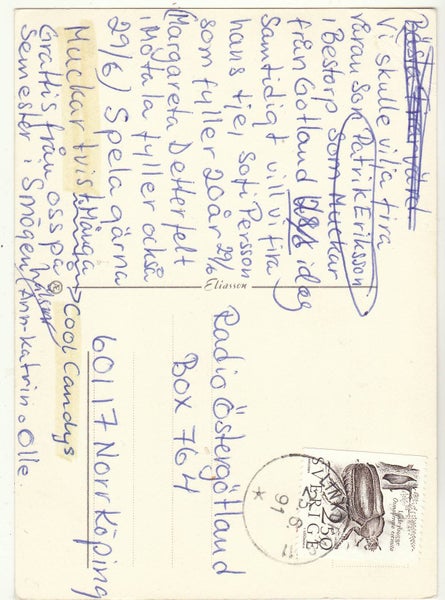 Vi skulle vilja fira
våran son Patrik Eriksson
i Bestorp som Muckar
från Gotland idag
Samtidigt vill vi fira
hans tjej Sofi Persson
som fyller 20 år 29/6
(Margareta Detterfelt
Motala fyller också
29/6) Spela gärna
Muckar tvist Många
Grattis från oss på
Semester i Smögen
Ann-Katrin o Olle.
→ Cool Candys
Eliasson
Radio Östergötland
Box 764
60117 Norrköping
SVERIGE